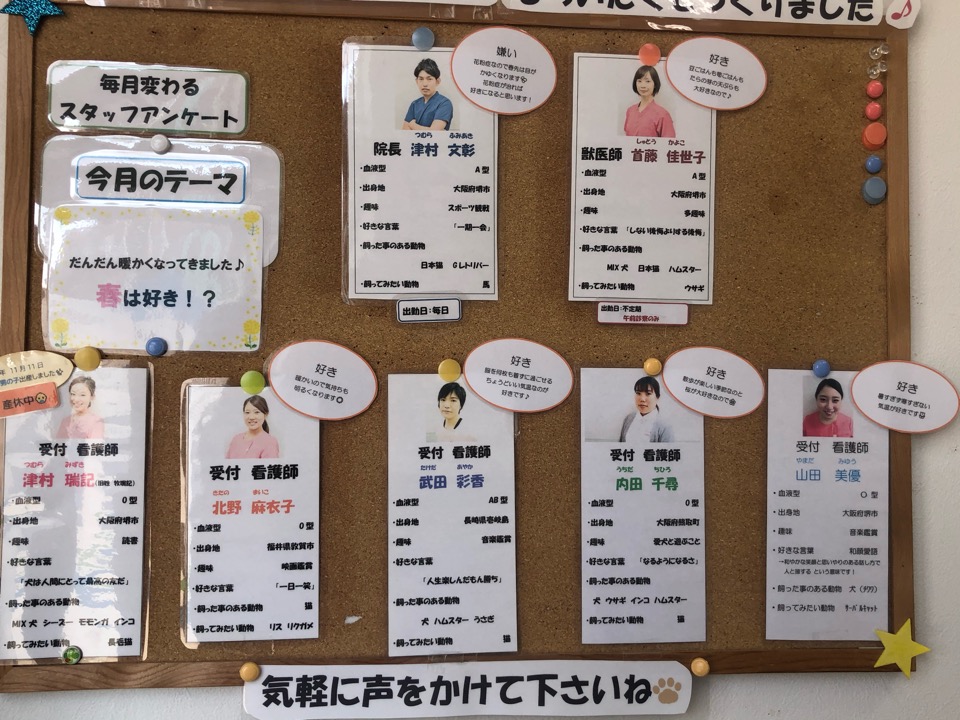 毎月変わる
スタッフアンケート
今月のテーマ
だんだん暖かくなってきました♪
春は好き！？
嫌い
花粉症なので春先は目が
かゆくなります
花粉症が治れば
好きになると思います！
つむら ふみあき
院長 津村 文彰
・血液型 A型
・出身地 大阪府堺市
・趣味 スポーツ観戦
・好きな言葉 「一期一会」
・飼った事のある動物
日本猫 Gレトリバー
・飼ってみたい動物 馬
出勤日:毎日
好き
昼ごはんも夜ごはんも
たらの芽の天ぷらも
大好きなので♪
しゅとう かよこ
獣医師 首藤 佳世子
・血液型 A型
・出身地 大阪府堺市
・趣味 多趣味
・好きな言葉 「しない後悔よりする後悔」
・飼った事のある動物
MIX犬 日本猫 ハムスター
・飼ってみたい動物 ウサギ
出勤日:不定期
午前診察のみ
年 11月11日
男の子出産しました
産休中
受付 看護師
つむら みずき
津村 瑞記(旧姓 牧瑞記)
・血液型 O型
・出身地 大阪府堺市
・趣味 読書
・好きな言葉
「犬は人間にとって最高の友だ」
・飼った事のある動物
MIX犬 シーズー モモンガ インコ
・飼ってみたい動物 長毛猫
好き
暖かいので気持ちも
明るくなります
受付 看護師
きたの まいこ
北野 麻衣子
・血液型 O型
・出身地 福井県敦賀市
・趣味 映画鑑賞
・好きな言葉 「一日一笑」
・飼った事のある動物 猫
・飼ってみたい動物 リス リクガメ
好き
服を何枚も着ずに過ごせる
ちょうどいい気温なのが
好きです♪
受付 看護師
たけだ あやか
武田 彩香
・血液型 AB型
・出身地 長崎県壱岐島
・趣味 音楽鑑賞
・好きな言葉
「人生楽しんだもん勝ち」
・飼った事のある動物
犬 ハムスター うさぎ
・飼ってみたい動物 猫
好き
散歩が楽しい季節なのと
桜が大好きなので
受付 看護師
うちだ ちひろ
内田 千尋
・血液型 O型
・出身地 大阪府熊取町
・趣味 愛犬と遊ぶこと
・好きな言葉 「なるようになるさ」
・飼った事のある動物
犬 ウサギ インコ ハムスター
・飼ってみたい動物 猫
好き
暑すぎず寒すぎない
気温が好きです
受付 看護師
やまだ みゆう
山田 美優
・血液型 O型
・出身地 大阪府堺市
・趣味 音楽鑑賞
・好きな言葉 和顔愛語
→和やかな笑顔と思いやりのある話し方で
人と接する という意味です！
・飼った事のある動物 犬（チワワ）
・飼ってみたい動物 サーバルキャット
気軽に声をかけて下さいね